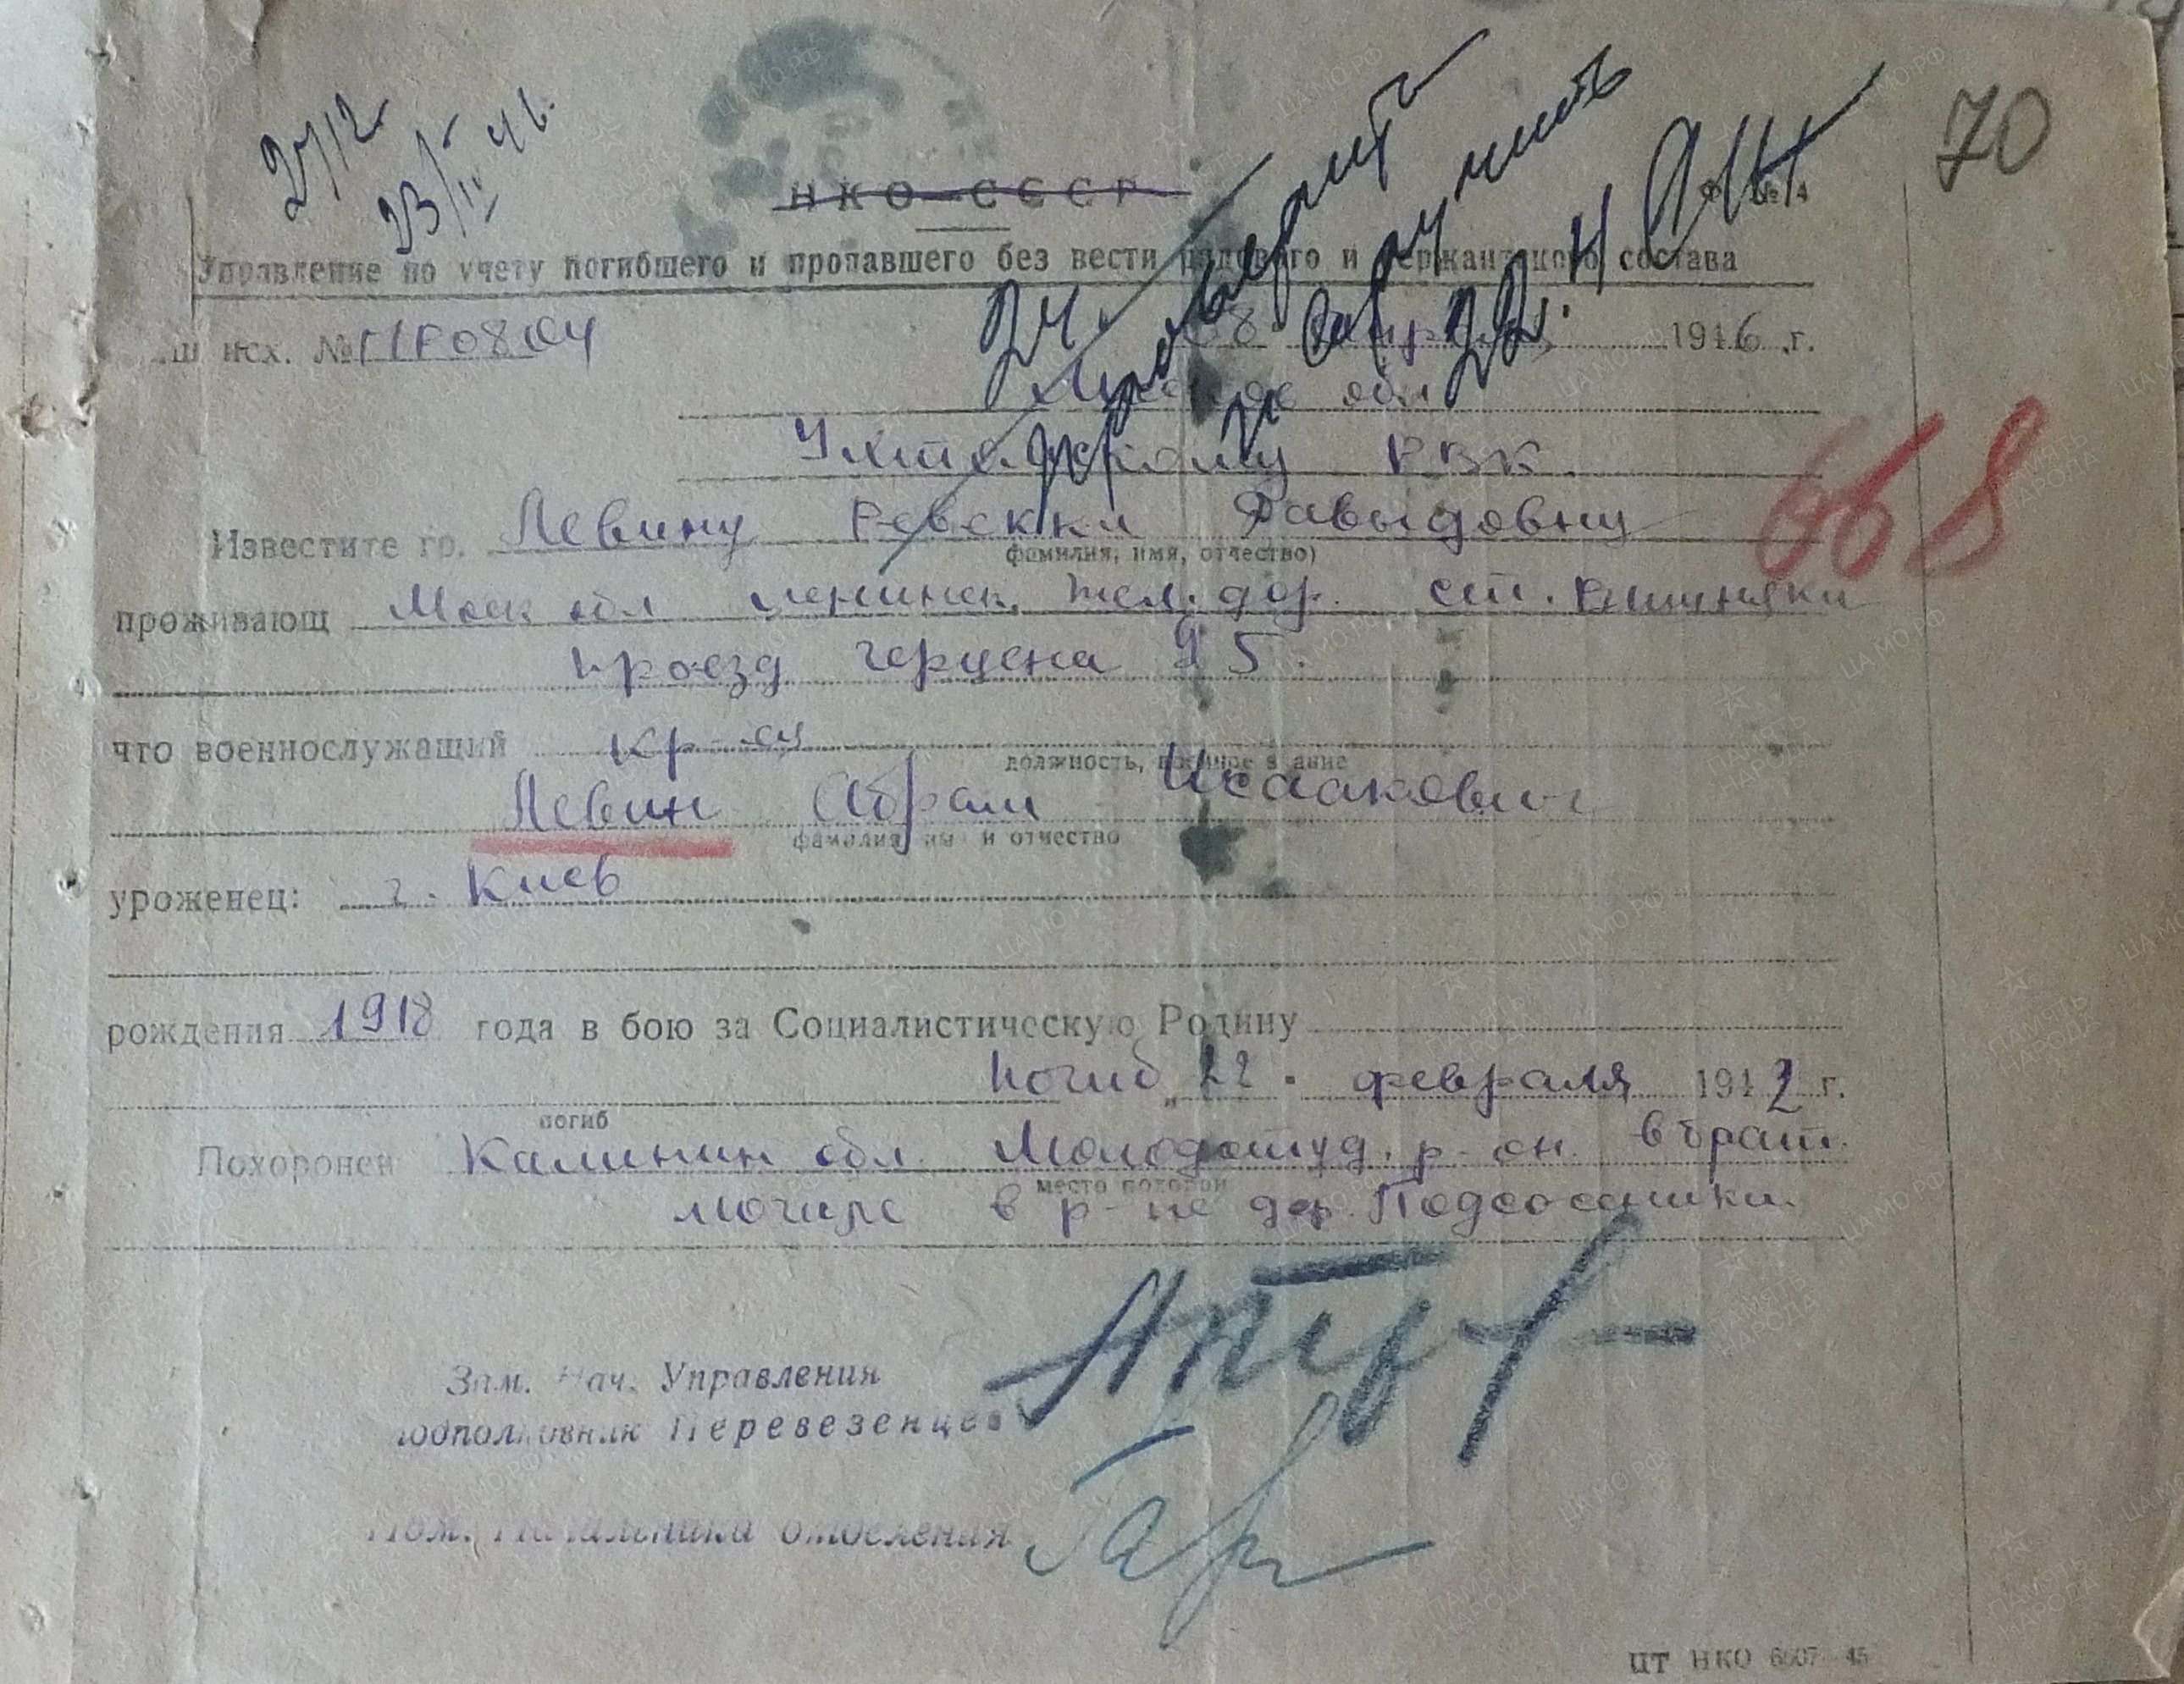 70
2712
23/IV 46.
НКО СССР
Ф. № 4
Управление по учету погибшего и пропавшего без вести рядового и сержантского состава
исх. № 0804
1946 г.
обл
Ухтомскому РВК.
668
Известите гр. Левину Ревекки Давыдовну
фамилия, имя, отчество)
проживающ Моск обл ленинск. жел. дор. ст. Вишняки
проезд герцена 25.
что военнослужащий кр-ец
должность, военное звание
Левин Абрам Исаакович
фамилия имя и отчество
уроженец: г. Киев
рождения 1918 года в бою за Социалистическую Родину
погиб „22. февраля 1942 г.
погиб
Похоронен Калинин обл. Молодотуд. р-он. в брат.
место похорон
могиле в р-не дер. Подсосонники.
Зам. Нач. Управления
подполковник Перевезенцев
Пом. Начальника отделения
ЦТ НКО 6607—45